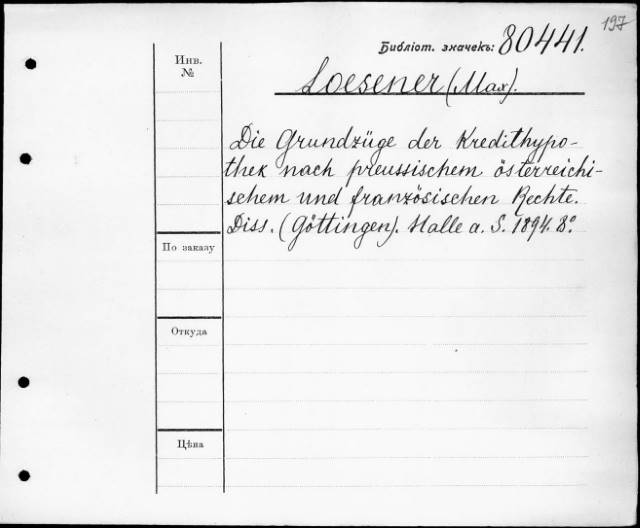 197
Библіот. значекъ: 80441.
Инв.
№
Loesener (Max).
Die Grundzüge der Kredithypo-
thek nach preussischem österreichi-
schem und französischen Rechte.
Diss. (Göttingen). Halle a. S. 1894. 8°.
По заказу
Откуда
Цѣна